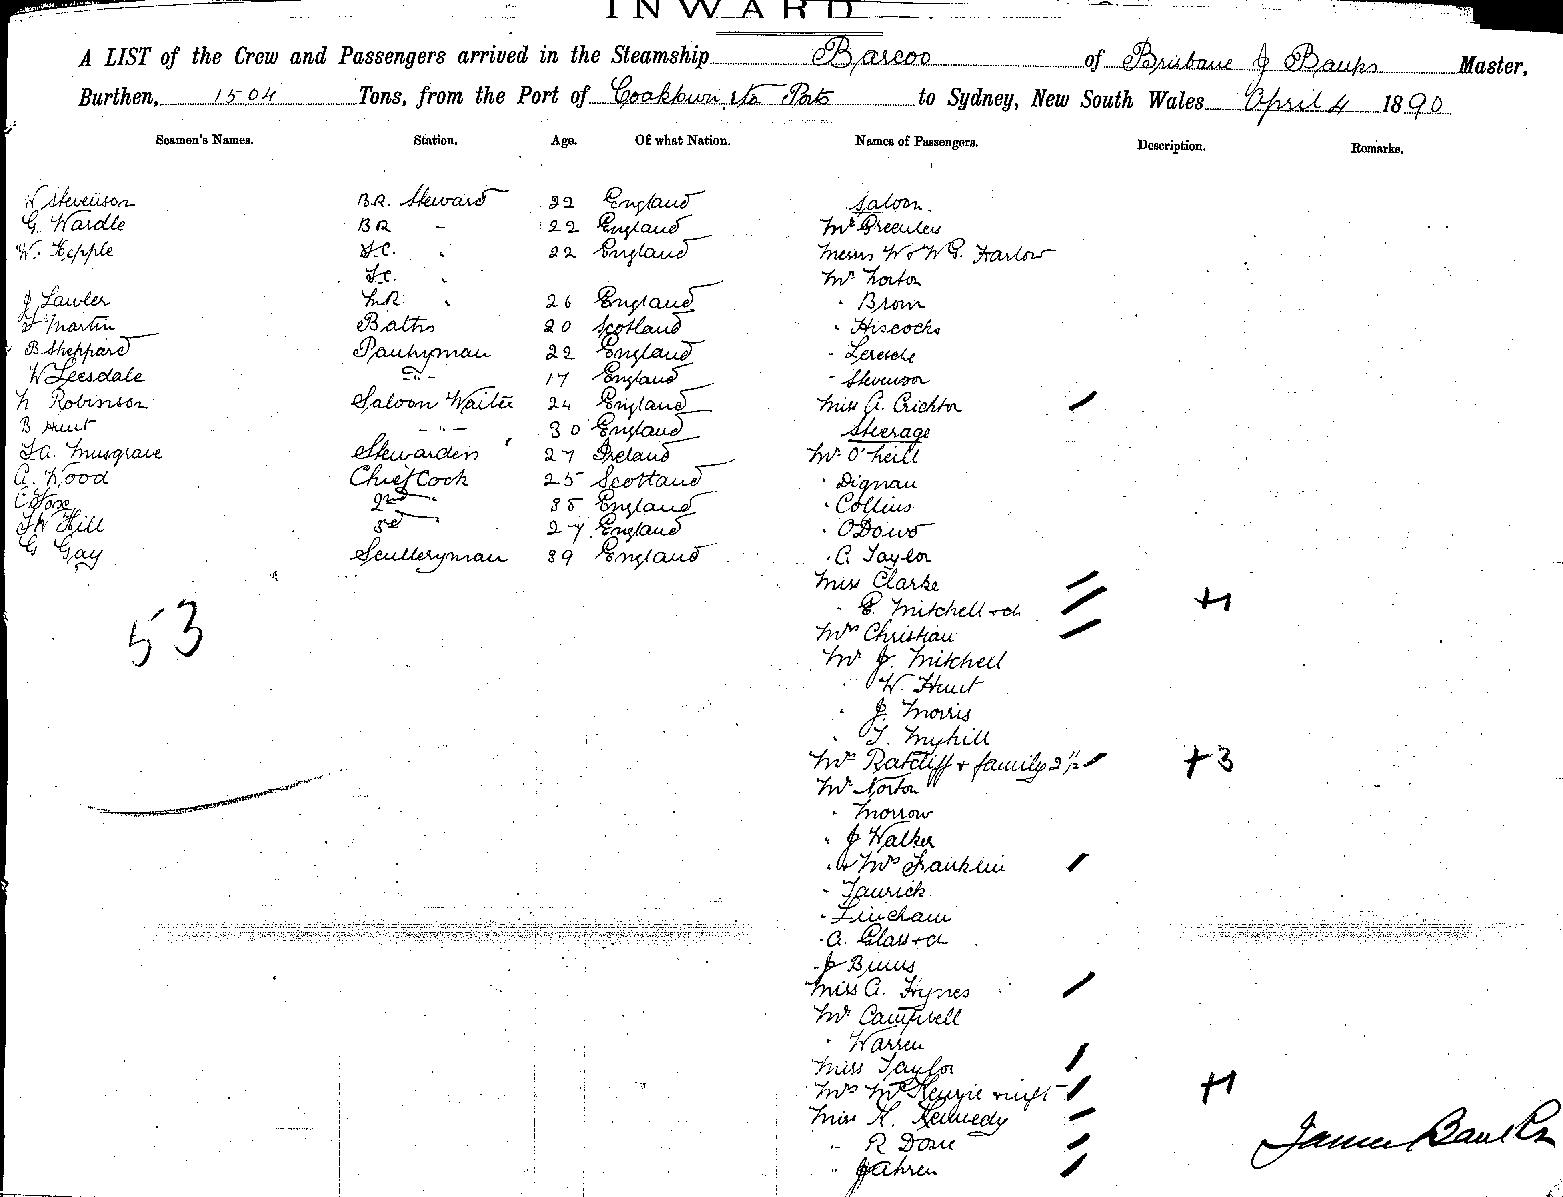 INWARD
A LIST of the Crew and Passengers arrived in the Steamship Barcoo of Brisbane J Banks Master,
Burthen, 1504 Tons, from the Port of Cooktown via Ports to Sydney, New South Wales April 4 1890
Seamen's Names. Station. Age. Of what Nation. Names of Passengers. Description. Remarks.
W Stevenson B.R. Steward 22 England Saloon
G. Wardle BR - 22 England Mr Greenlees
W. Hepple F.C. " 22 England Messrs W & W G. Farlow
F.C. " Mr Norton
J Lawler M.R " 26 England " Brown
F Martin Baths 20 Scotland " Hiscocks
B Sheppard Pantryman 22 England " Leresche
W Leesdale Do 17 England " Stevenson
N Robinson Saloon Waiter 24 England Miss A. Crichton
B Hunt - " - 30 England Steerage
F.A. Musgrave Stewardess 27 Ireland Mr O'Neill
A. Wood Chief Cook 25 Scotland " Dignan
C Jose 2nd " 35 England " Collins
F W Hill 3rd " 27 England " O Dowd
G Gay Scullery man 39 England " C. Taylor
Miss Clarke
53 " E. Mitchell & ch +1
Mrs Christian
Mr J. Mitchell
" W. Hunt
" J. Morris
" T. Myhill
Mrs Ratcliff & family 2 1/2 +3
Mr Norton
" Morrow
" J Walker
" & Mrs Franklin
" Taurick
" Lincham
" A. Glass & ch
" J Binns
Miss A. Hynes
Mr Campbell
" Warren
Miss Taylor
Mrs McKenzie & inft +1
Miss K. Kennedy
" R Done
" J Ahren
James Banks